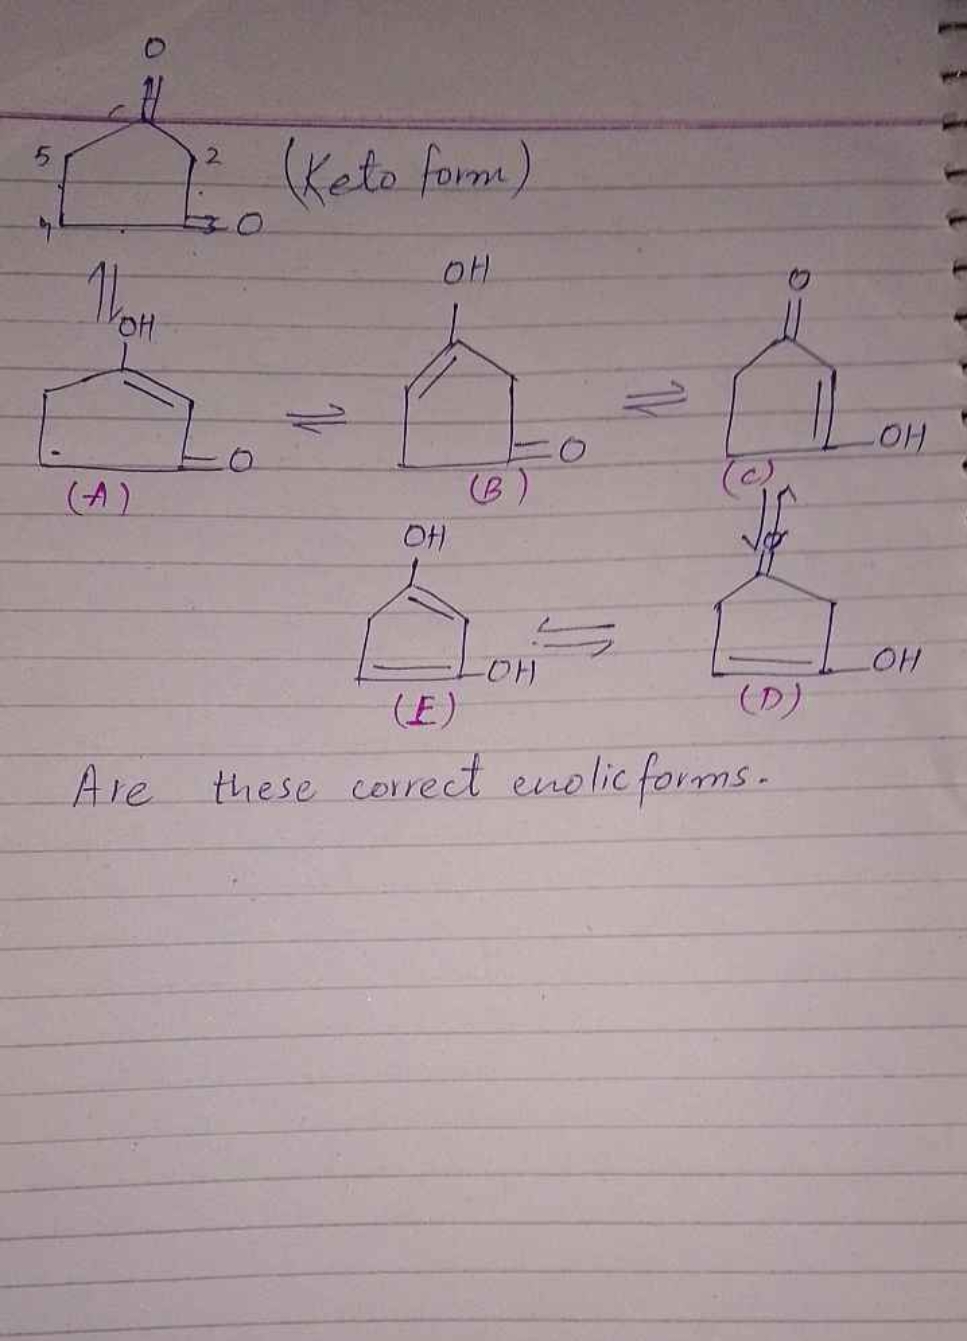 O
5 2 (Keto form)
4 3 O
OH OH O
O O OH
(A) (B) (C)
OH
OH OH
(E) (D)
Are these correct enolic forms.